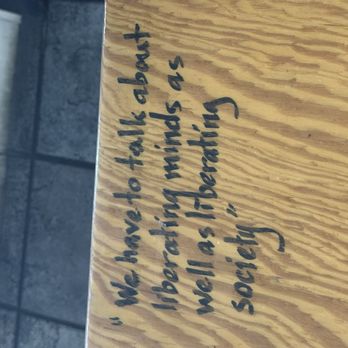 "We have to talk about
liberating minds as
well as liberating
society"